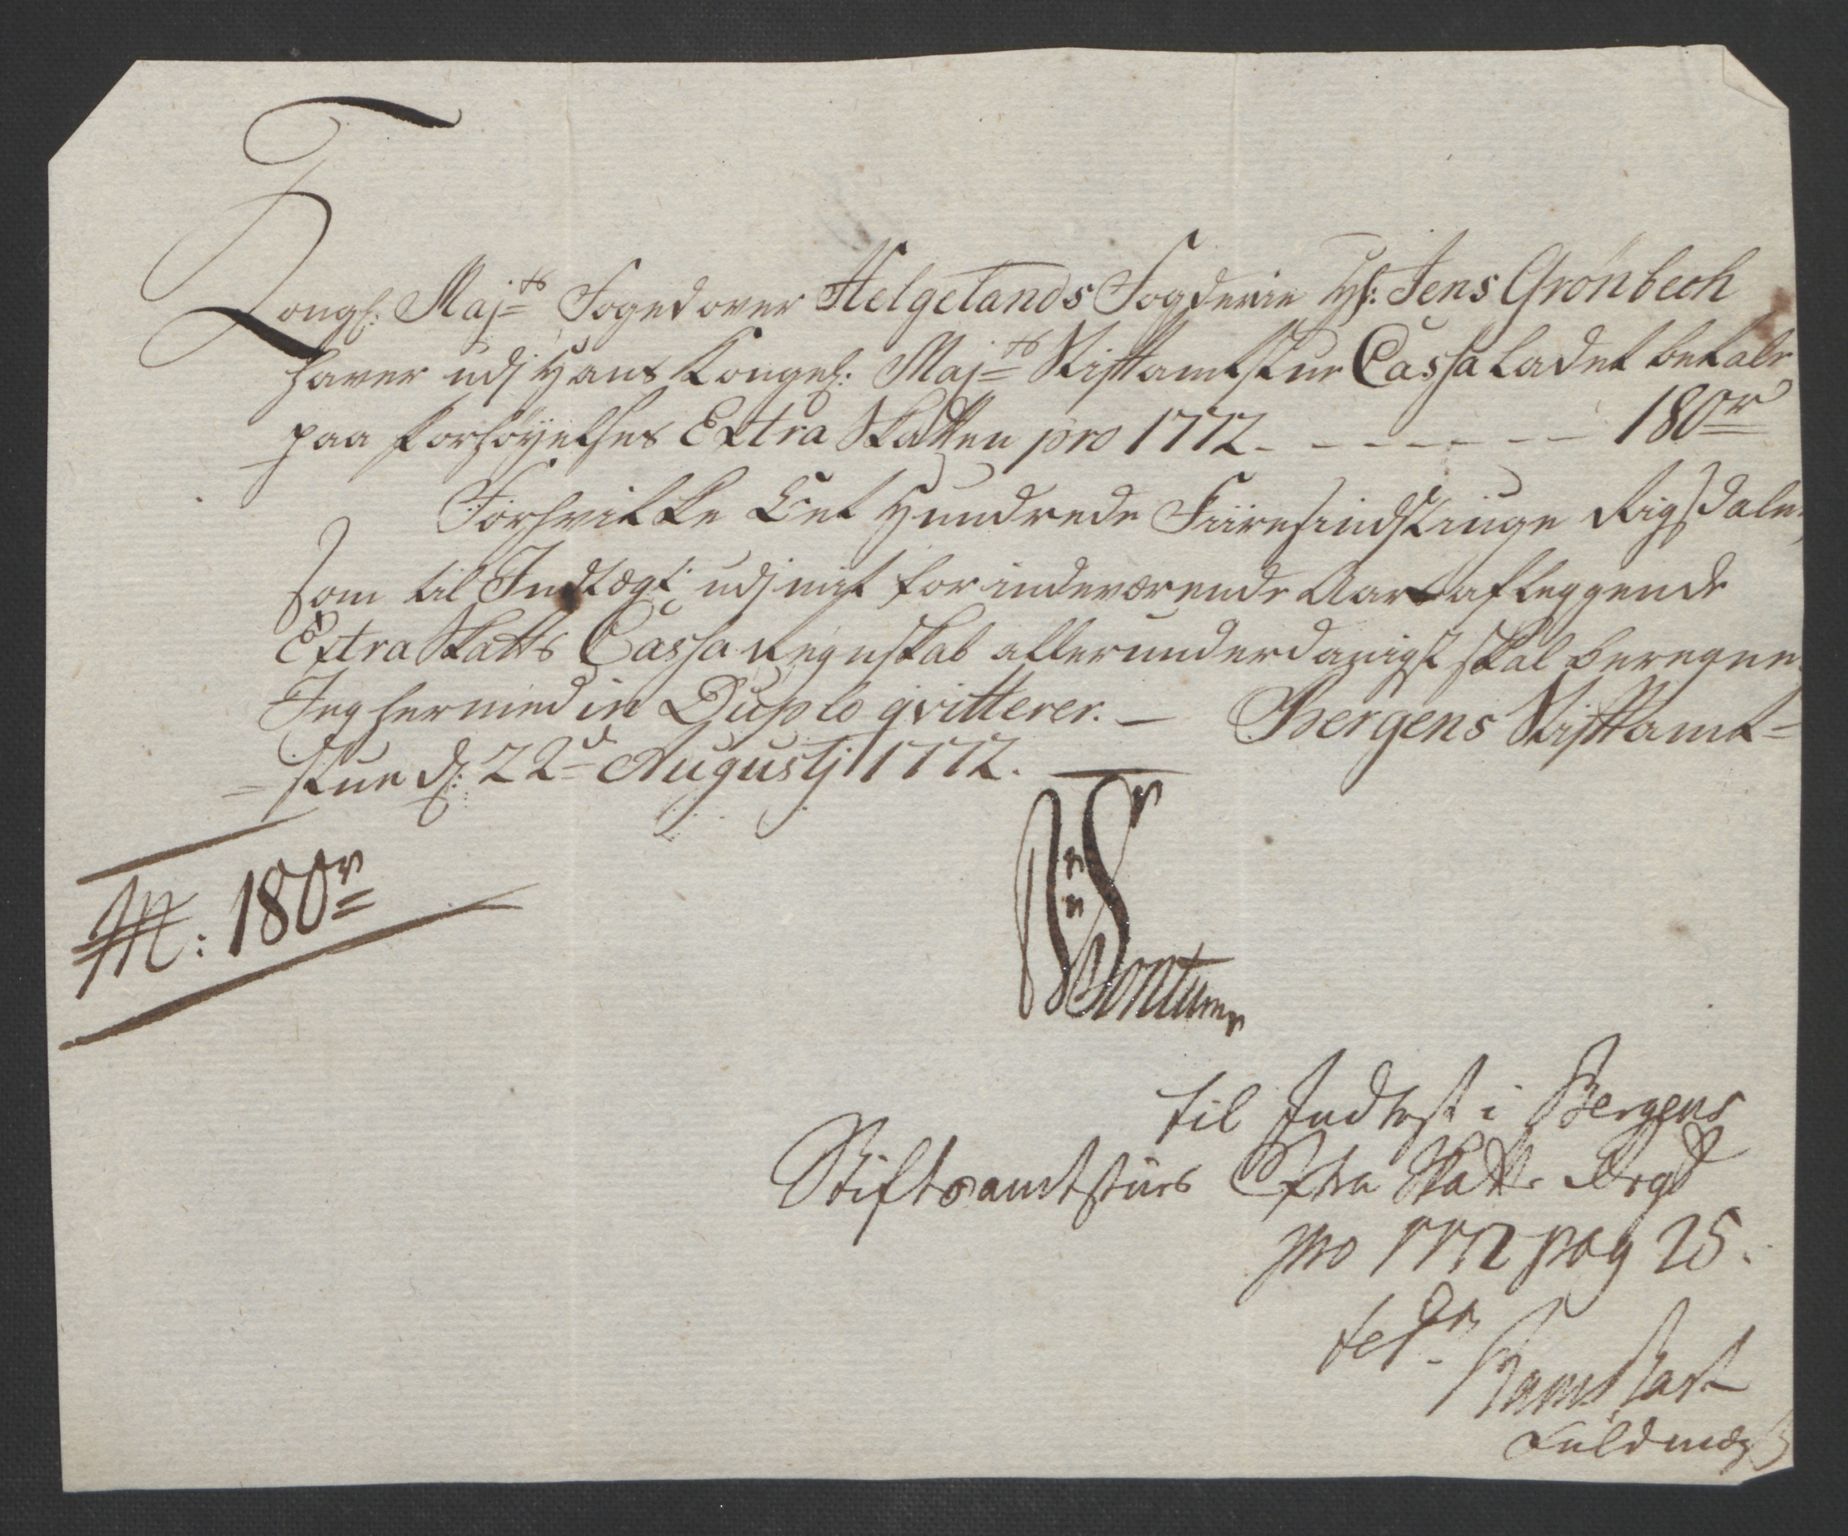 Kongl: Maj.ts Foged over Helgelands Fogderie Hr: Jens Grönbech
haver udj Hans Kongel: Maj.ts Stiftamtstue Cassa Ladet betale
paa Forhöyelses Extra Skatten pro 1772. - - - - - - 180 r
Forhvilke Eet Hundrede Fiiresindstiuge Rigsdaler
som til Indtægt udj mit for indeværende Aar afleggende
Extra Skatts Cassa Regnskab allerunderdanigst skal beregne,
Jeg hermed in Duplo qvitterer. — Bergens Stiftamt=
=stue d: 22d Augustj 1772.
180 r
til Indtegt i Bergens
Stiftsamtstues Extra Skatte
pro 1772 pag 25.
Fuldmægt